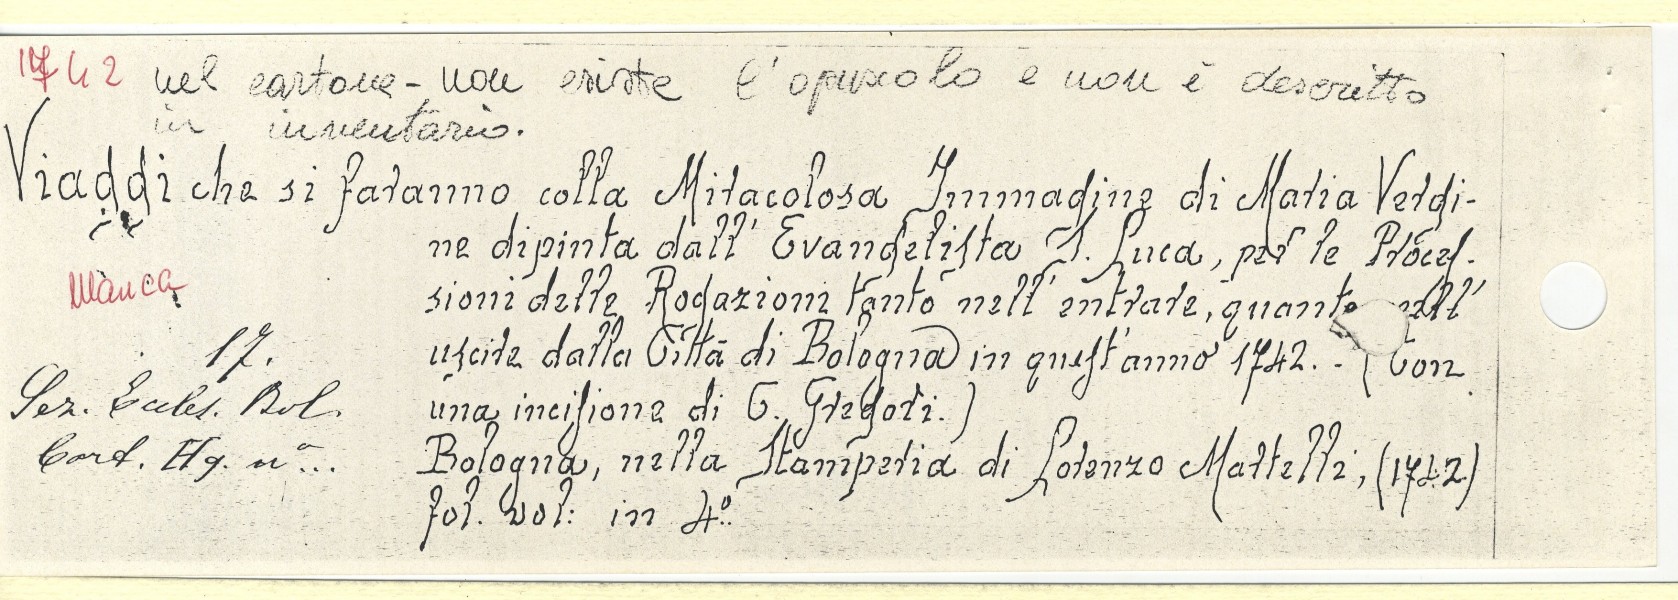 1742 nel cartone - non esiste l'opuscolo e non è descritto
in inventario.
Viaggi che si faranno colla Miracolosa Immagine di Maria Vergi-
ne dipinta dall' Evangelista S. Luca, per le Proces-
sioni delle Rogazioni tanto nell' entrare, quanto nell'
uscire dalla Città di Bologna in quest'anno 1742. - (Con
una incisione di C. Gregori.)
Bologna, nella Stamperia di Lorenzo Martelli, (1742)
fol. vol: in 4°.
Manca
17.
Sez. Eccles. Bol.
Cart. Hg. n° ...